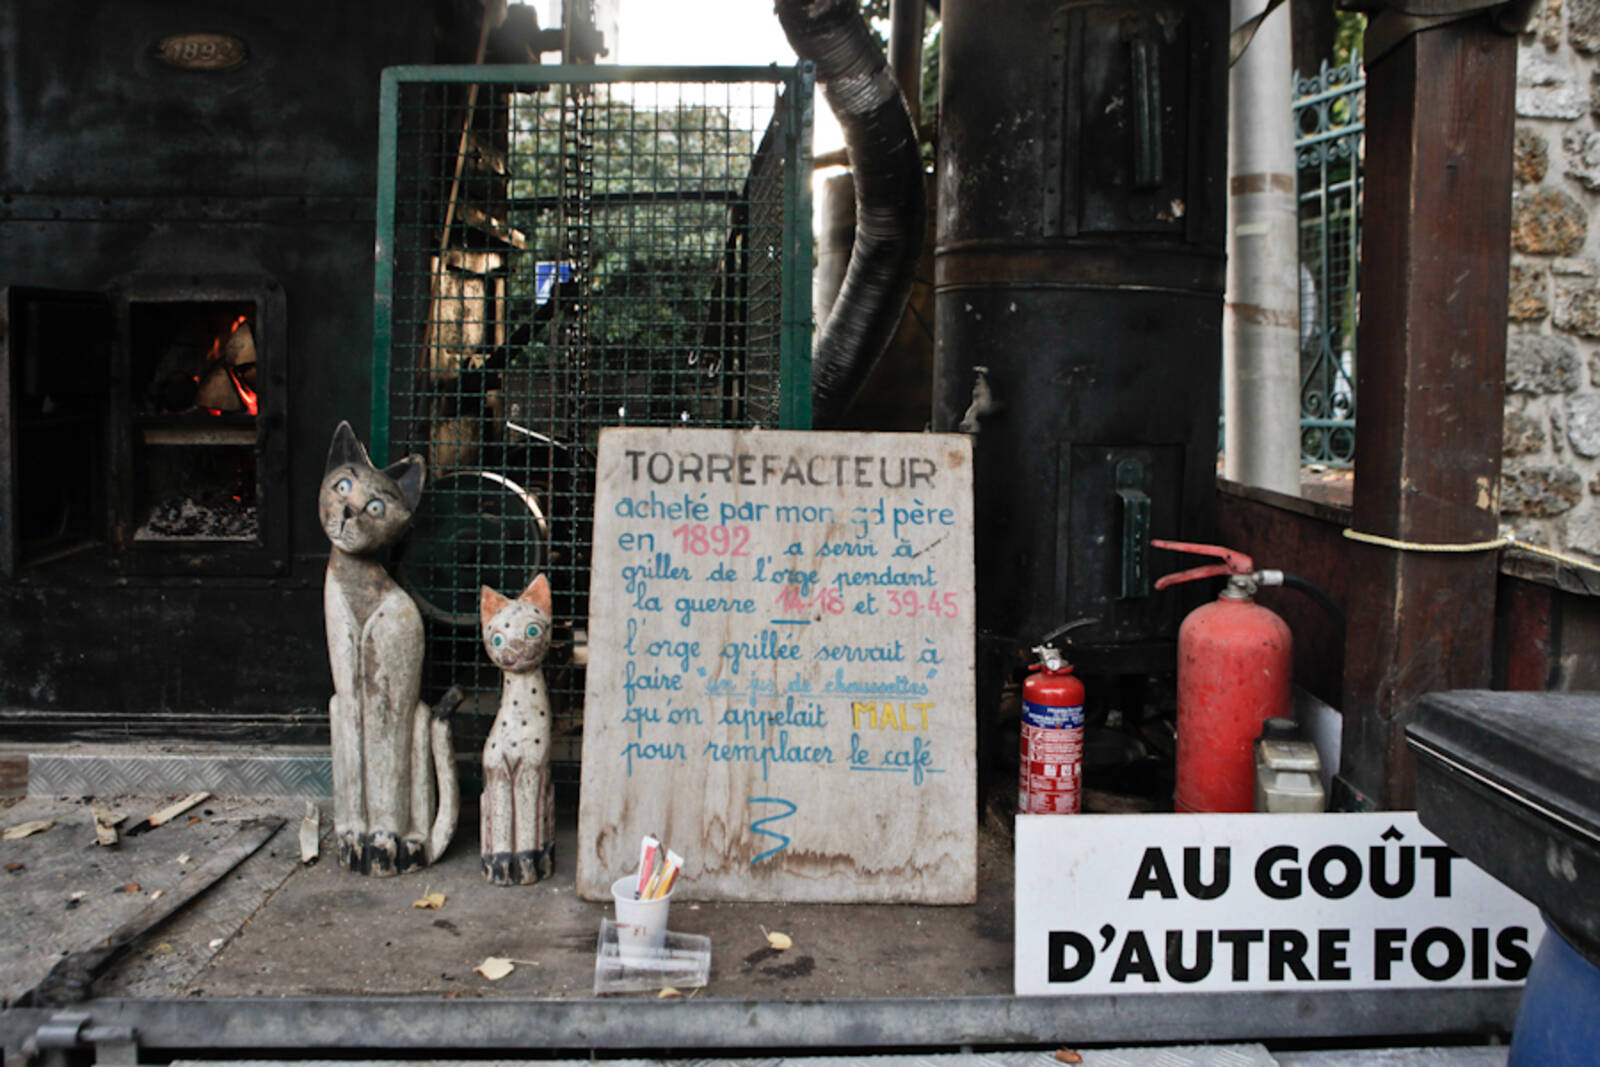 1892
TORREFACTEUR
acheté par mon gd père
en 1892 a servi à
griller de l'orge pendant
la guerre 14-18 et 39-45
l'orge grillée servait à
faire "un jus de chaussettes"
qu'on appelait MALT
pour remplacer le café
AU GOÛT
D'AUTRE FOIS